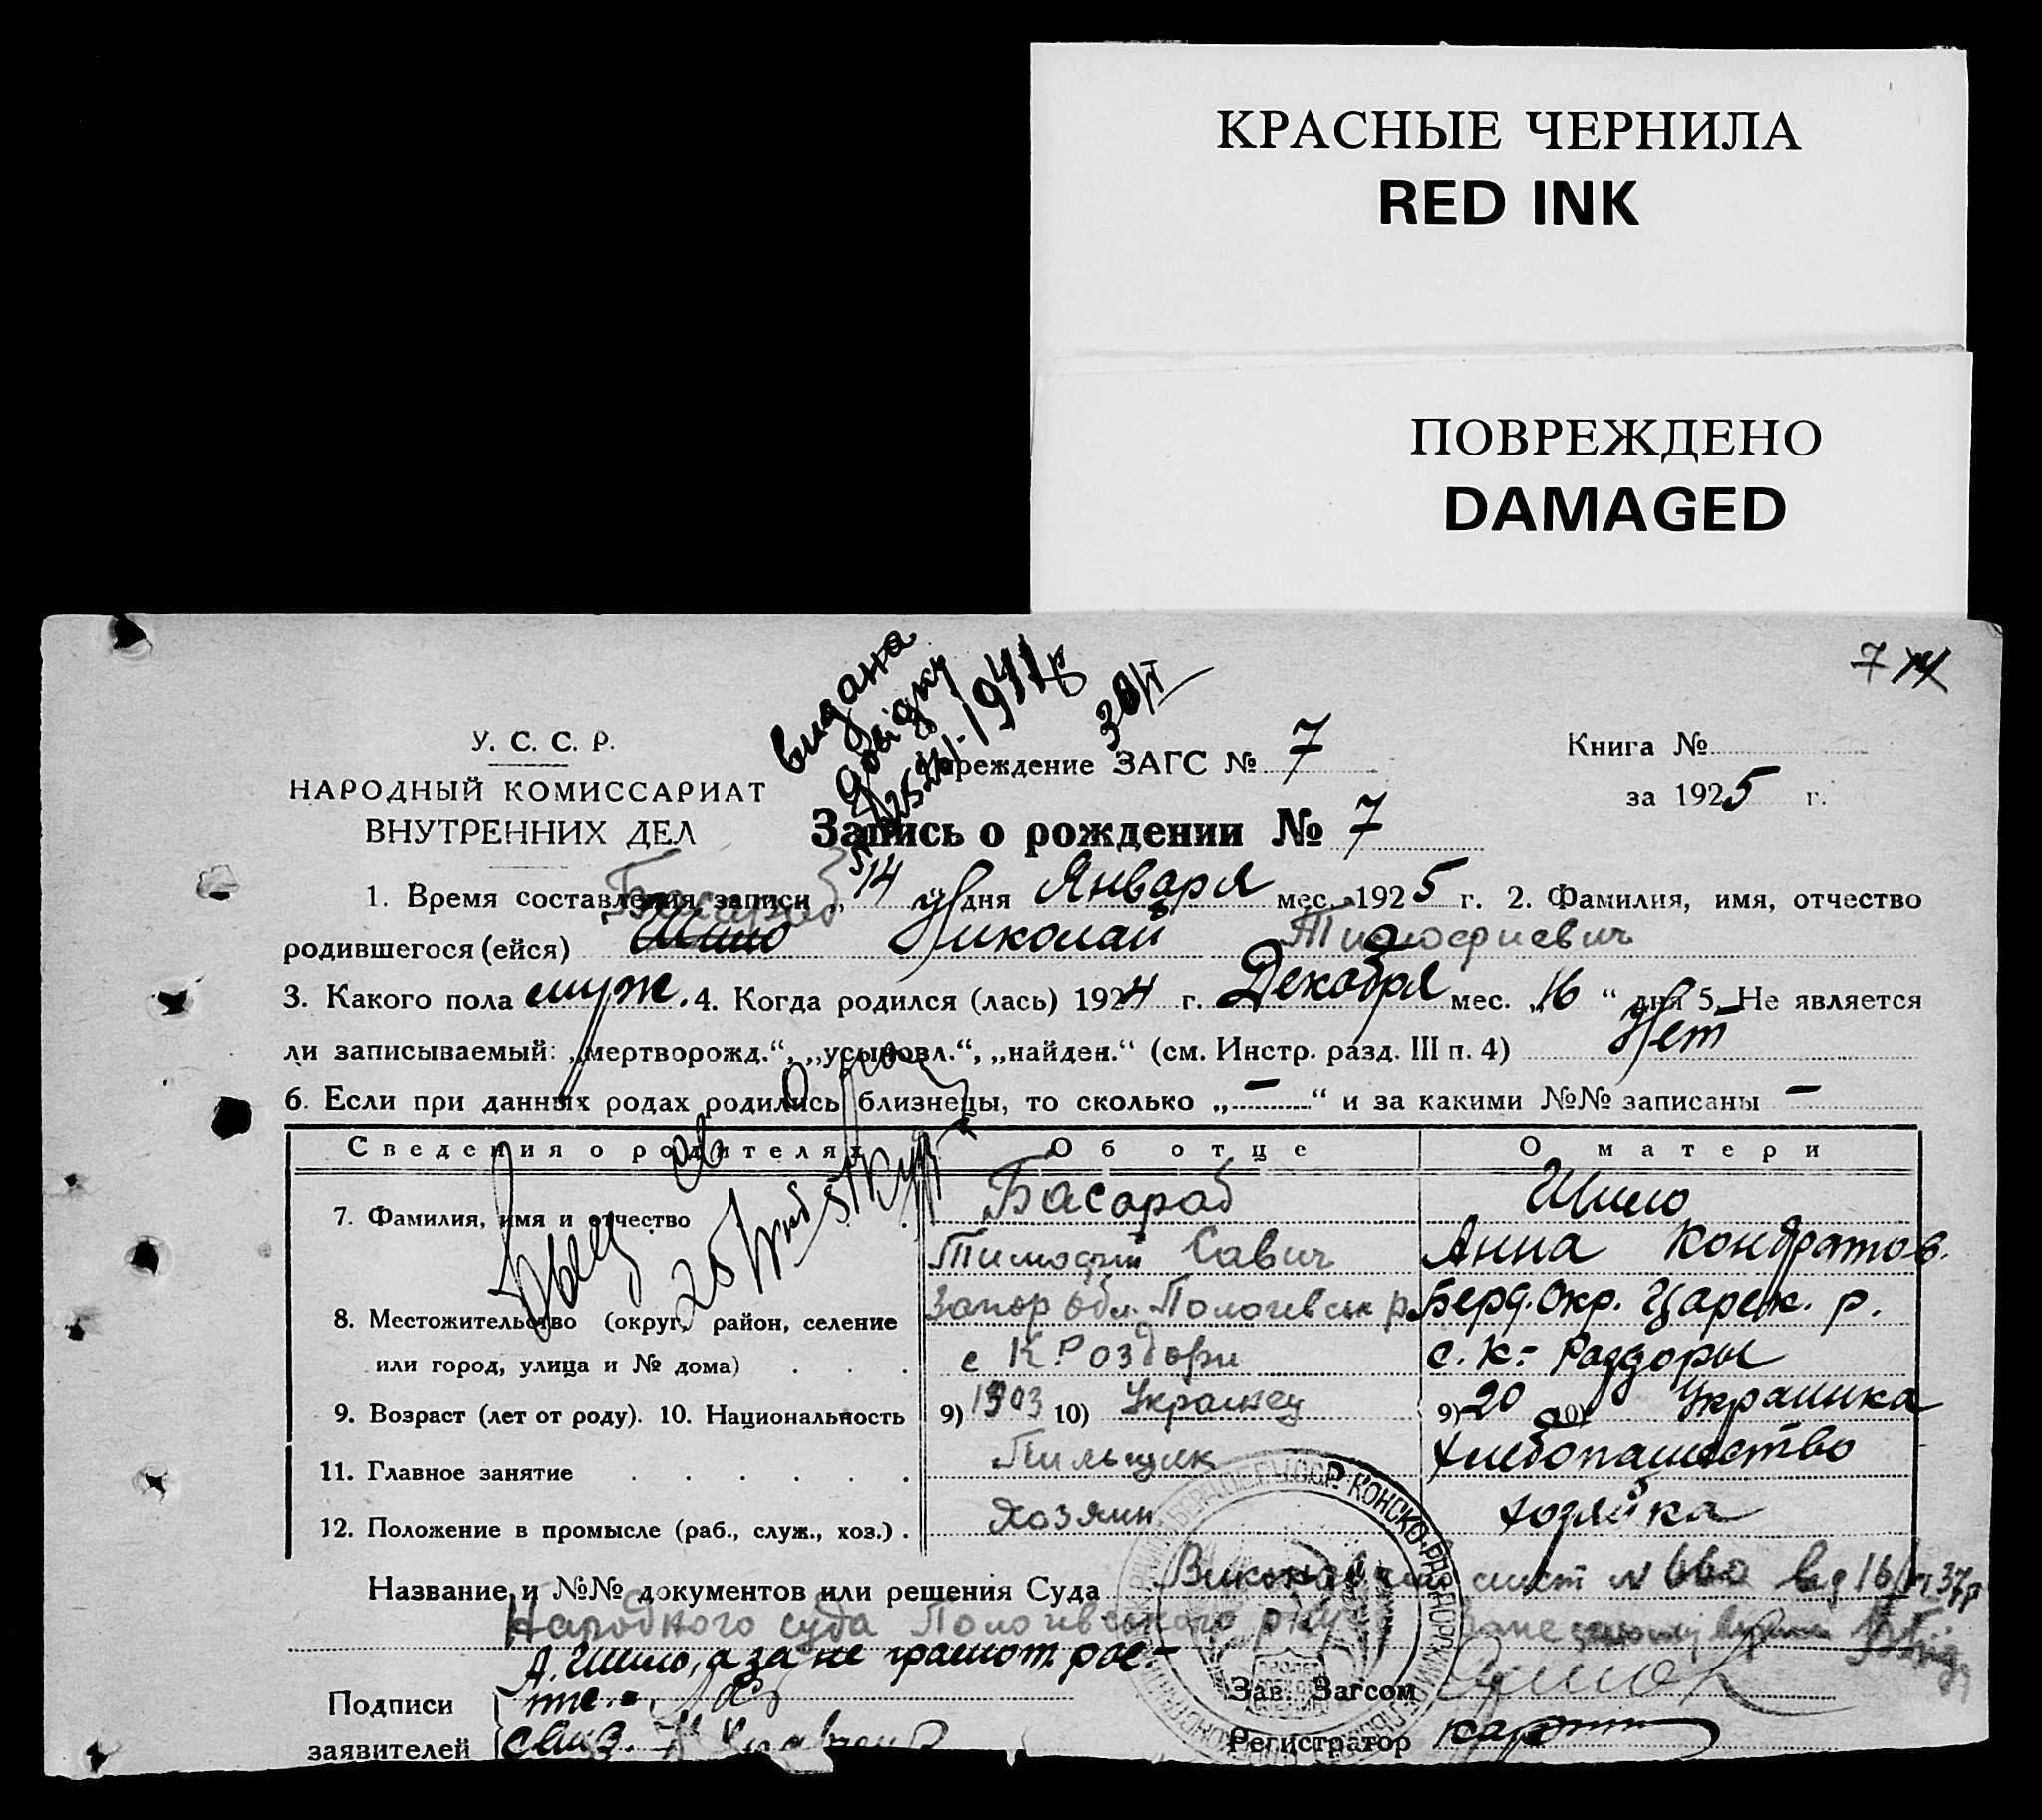 КРАСНЫЕ ЧЕРНИЛА
RED INK
ПОВРЕЖДЕНО
DAMAGED
7
видана
довідку
1941р
У. С. С. Р.
НАРОДНЫЙ КОМИССАРИАТ
ВНУТРЕННИХ ДЕЛ
Учреждение ЗАГС № 7
Книга №
за 1925 г.
Запись о рождении № 7
Басараб
1. Время составления записи „14“ дня Января мес. 1925 г. 2. Фамилия, имя, отчество
родившегося (ейся) Шило Николай Тимофиевич
3. Какого пола муж. 4. Когда родился (лась) 1924 г. Декабря мес. „16“ дня 5. Не является
ли записываемый: „мертворожд.“, „усыновл.“, „найден.“ (см. Инстр. разд. III п. 4) Нет
6. Если при данных родах родились близнецы, то сколько „—“ и за какими №№ записаны —
Сведения о родителях Об отце О матери
7. Фамилия, имя и отчество Басараб Шило
Тимофий Савич Анна Кондратов.
8. Местожительство (округ, район, селение Запор обл. Пологивськ р. Берд. Окр. Царек. р.
или город, улица и № дома) с К. Роздори с. К.- Раздоры
9. Возраст (лет от роду). 10. Национальность 9) 1903 10) Украинец 9) 20 10) Украинка
11. Главное занятие Пильщик хлебопашество
12. Положение в промысле (раб., служ., хоз.) Хозяин хозяйка
Название и №№ документов или решения Суда Виконавчий лист № 660 від 16
Народного суда Пологивського р-ну
А. Шило, а за не грамот. рос-
Подписи
заявителей
Зав. Загсом
Регистратор